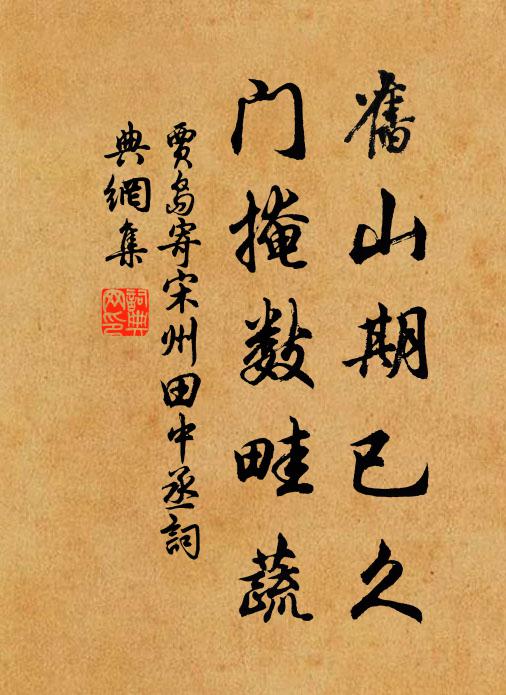 舊山期已久
门掩数畦蔬
賈島寄宋州田中丞詞
典網集
詞典
网印